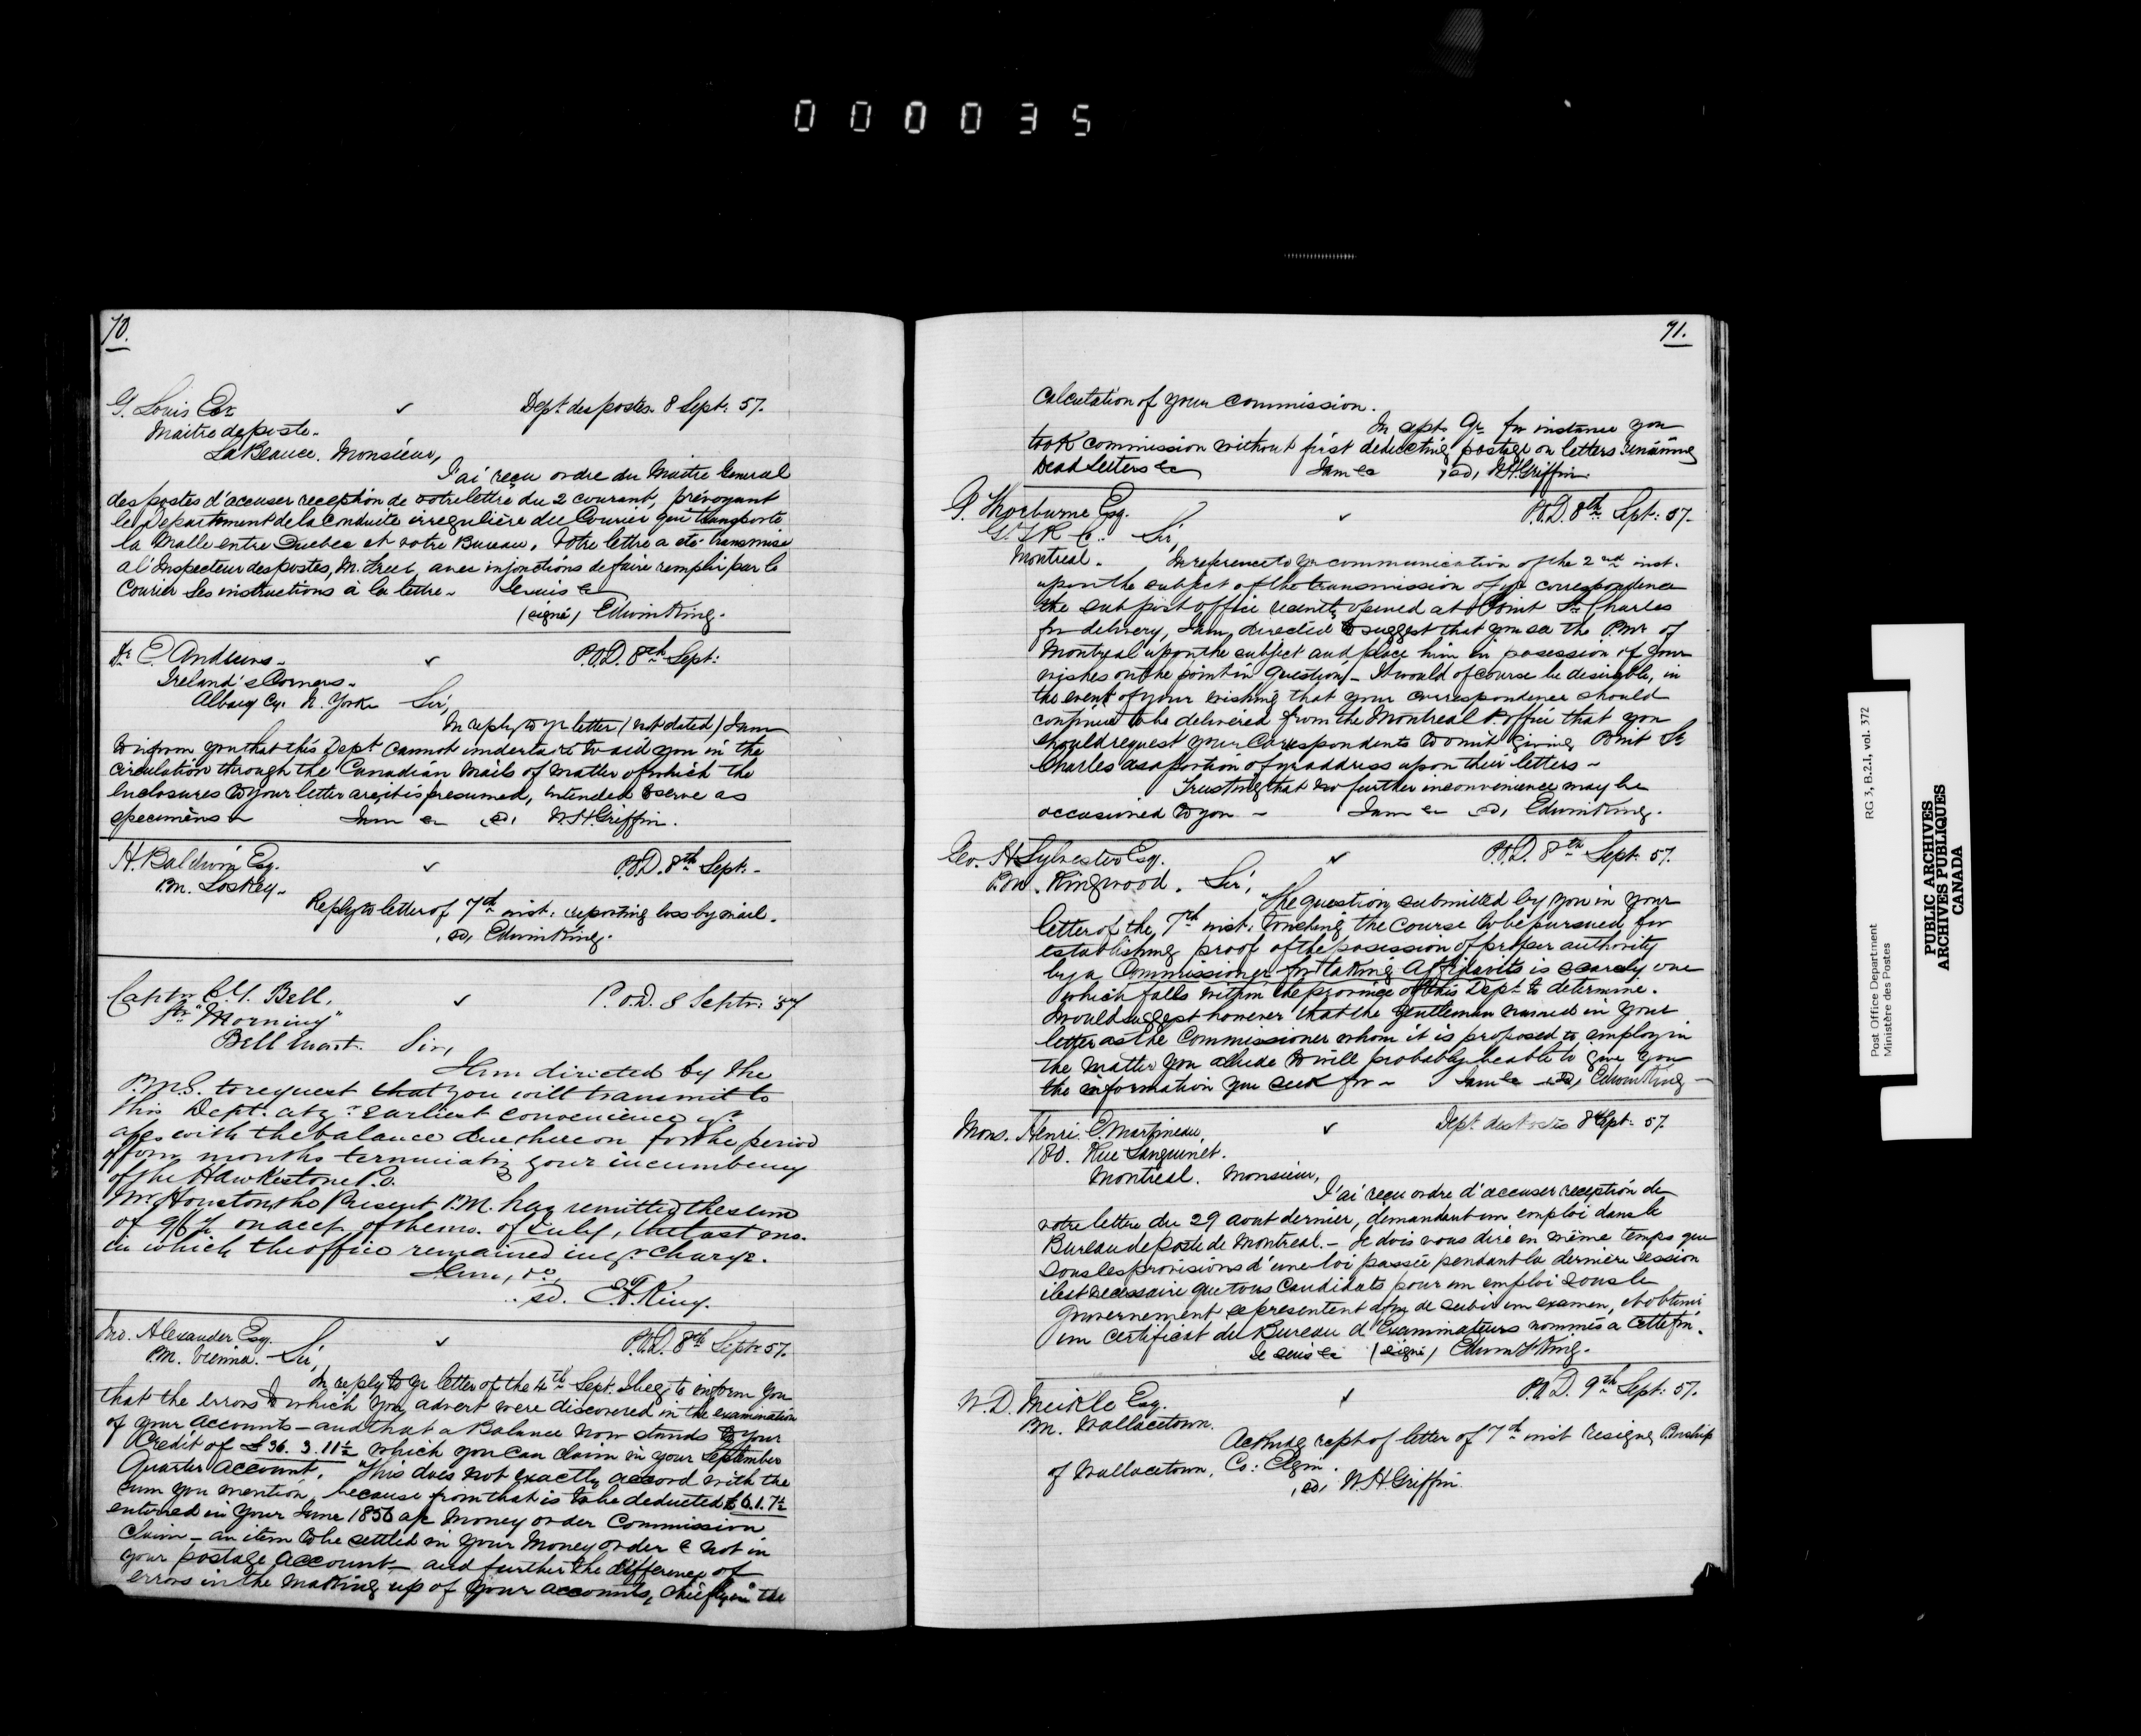 000035
70.
G. Louis Esqr ✓ Dept. des postes. 8 Sept: 57.
Maitre de poste.
La Beauce. Monsieur,
J'ai reçu ordre du Maitre General
des postes d'accuser reception de votre lettre du 2 courant, prévoyant
le Departement de la conduite irregulière du Courier qui transporte
la Malle entre Quebec et votre Bureau. Votre lettre a eté transmise
a l'Inspecteur des postes, M. Freer, avec injonctions de faire remplir par le
Courier ses instructions à la lettre. Je suis &c
(signé) Edwin King.
E. Andrews. ✓ P.O.D. 8th Sept:
Ireland's Corners.
Albany Cy. N. York Sir,
In reply to yr letter (not dated) I am
to inform you that this Dept. cannot undertake to aid you in the
circulation through the Canadian Mails of matter of which the
enclosures to your letter are, it is presumed, intended to serve as
specimens I am &c sd, W.H. Griffin.
H. Baldwin Esq. ✓ P.O.D. 8th Sept.
P.M. Loskey.
Reply to letter of 7th inst: reporting loss by mail.
sd, Edwin King.
Captn C. Y. Bell. ✓ P.O.D. 8 Septr: 57
Str "Morning"
Bell Ewart. Sir,
I am directed by the
P.M.G. to request that you will transmit to
this Dept. at yr earliest convenience yr
a/cs with the balance due thereon for the period
of months terminating your incumbency
of the Hawkestone P.O.
Mr Houston, the Present P.M. has remitted the sum
of on acct. of the mo. of July, the last mo.
in which the office remained in yr charge.
I am, &c,
sd. E.F. King.
Jno. Alexander Esq. ✓ P.O.D. 8th Sept 57.
P.M. Vienna. Sir,
In reply to yr letter of the 4th Sept. I beg to inform you
that the errors to which you advert were discovered in the examination
of your accounts - and that a Balance now stands to your
Credit of £36. 3. 11½ which you can claim in your September
Quarter Account. This does not exactly accord with the
sum you mention, because from that is to be deducted £6.1.7½
entered in your June 1856 a/c Money order Commission
Claim - an item to be settled in your Money order & not in
your postage account - and further the difference of
errors in the making up of your accounts, chiefly in the
71.
Calculation of your commission.
In Sept. Qr. for instance you
took commission without first deducting postage on letters remaining
Dead Letters &c I am &c sd, W.H. Griffin
P. Thorburne Esq. ✓ P.O.D. 8th Sept: 57.
G.T.R Co. Sir,
Montreal. In reference to yr communication of the 2nd inst.
upon the subject of the transmission of yr correspondence
the sub post office recently opened at Point St. Charles
for delivery, I am directed to suggest that you see the P.Mr of
Montreal upon the subject and place him in posession of your
wishes on the point in question. It would of course be desirable, in
the event of your wishing that your correspondence should
continue to be delivered from the Montreal P. office that you
should request your Correspondents to omit giving Point St
Charles as a portion of yr address upon their letters -
Trusting that no further inconvenience may be
occasioned to you - I am &c sd, Edwin King.
Geo. H Sylvester Esq. ✓ P.O.D. 8th Sept: 57.
P.M. Ringwood. Sir,
The question, submitted by you in your
letter of the 7th inst. touching the course to be pursued for
establishing proof of the posession of proper authority
by a Commissioner for taking Affidavits is scarcely one
which falls within the province of this Dept. to determine.
I would suggest however that the gentleman named in your
letter as the Commissioner whom it is proposed to employ in
the matter you allude to will probably be able to give you
the information you seek for - I am &c sd, Edwin King -
Mons. Henri E. Martineau, ✓ Dept des Postes 8 Sept: 57.
180. Rue Sanguinet.
Montreal. Monsieur,
J'ai reçu ordre d'accuser reception de
votre lettre du 29 aout dernier, demandant un emploi dans le
Bureau de poste de Montreal. - Je dois vous dire en même temps que
sous les provisions d'une loi passée pendant la derniere session
il est necessaire que tous candidats pour un emploi sous le
Gouvernement se presentent afin de subir un examen, et obtenir
un certificat du Bureau d'Examinateurs nommés a cette fin.
Je suis &c (signé) Edwin F King.
W. D. Meikle Esq. ✓ P.O.D. 9th Sept: 57.
P.M. Wallacetown.
Acknowg rept of letter of 7th inst resigng Pmship
of Wallacetown, Co: Elgin.
sd, W.H. Griffin.
Post Office Department
Ministère des Postes
RG 3, B.2.1, vol. 372
PUBLIC ARCHIVES
ARCHIVES PUBLIQUES
CANADA